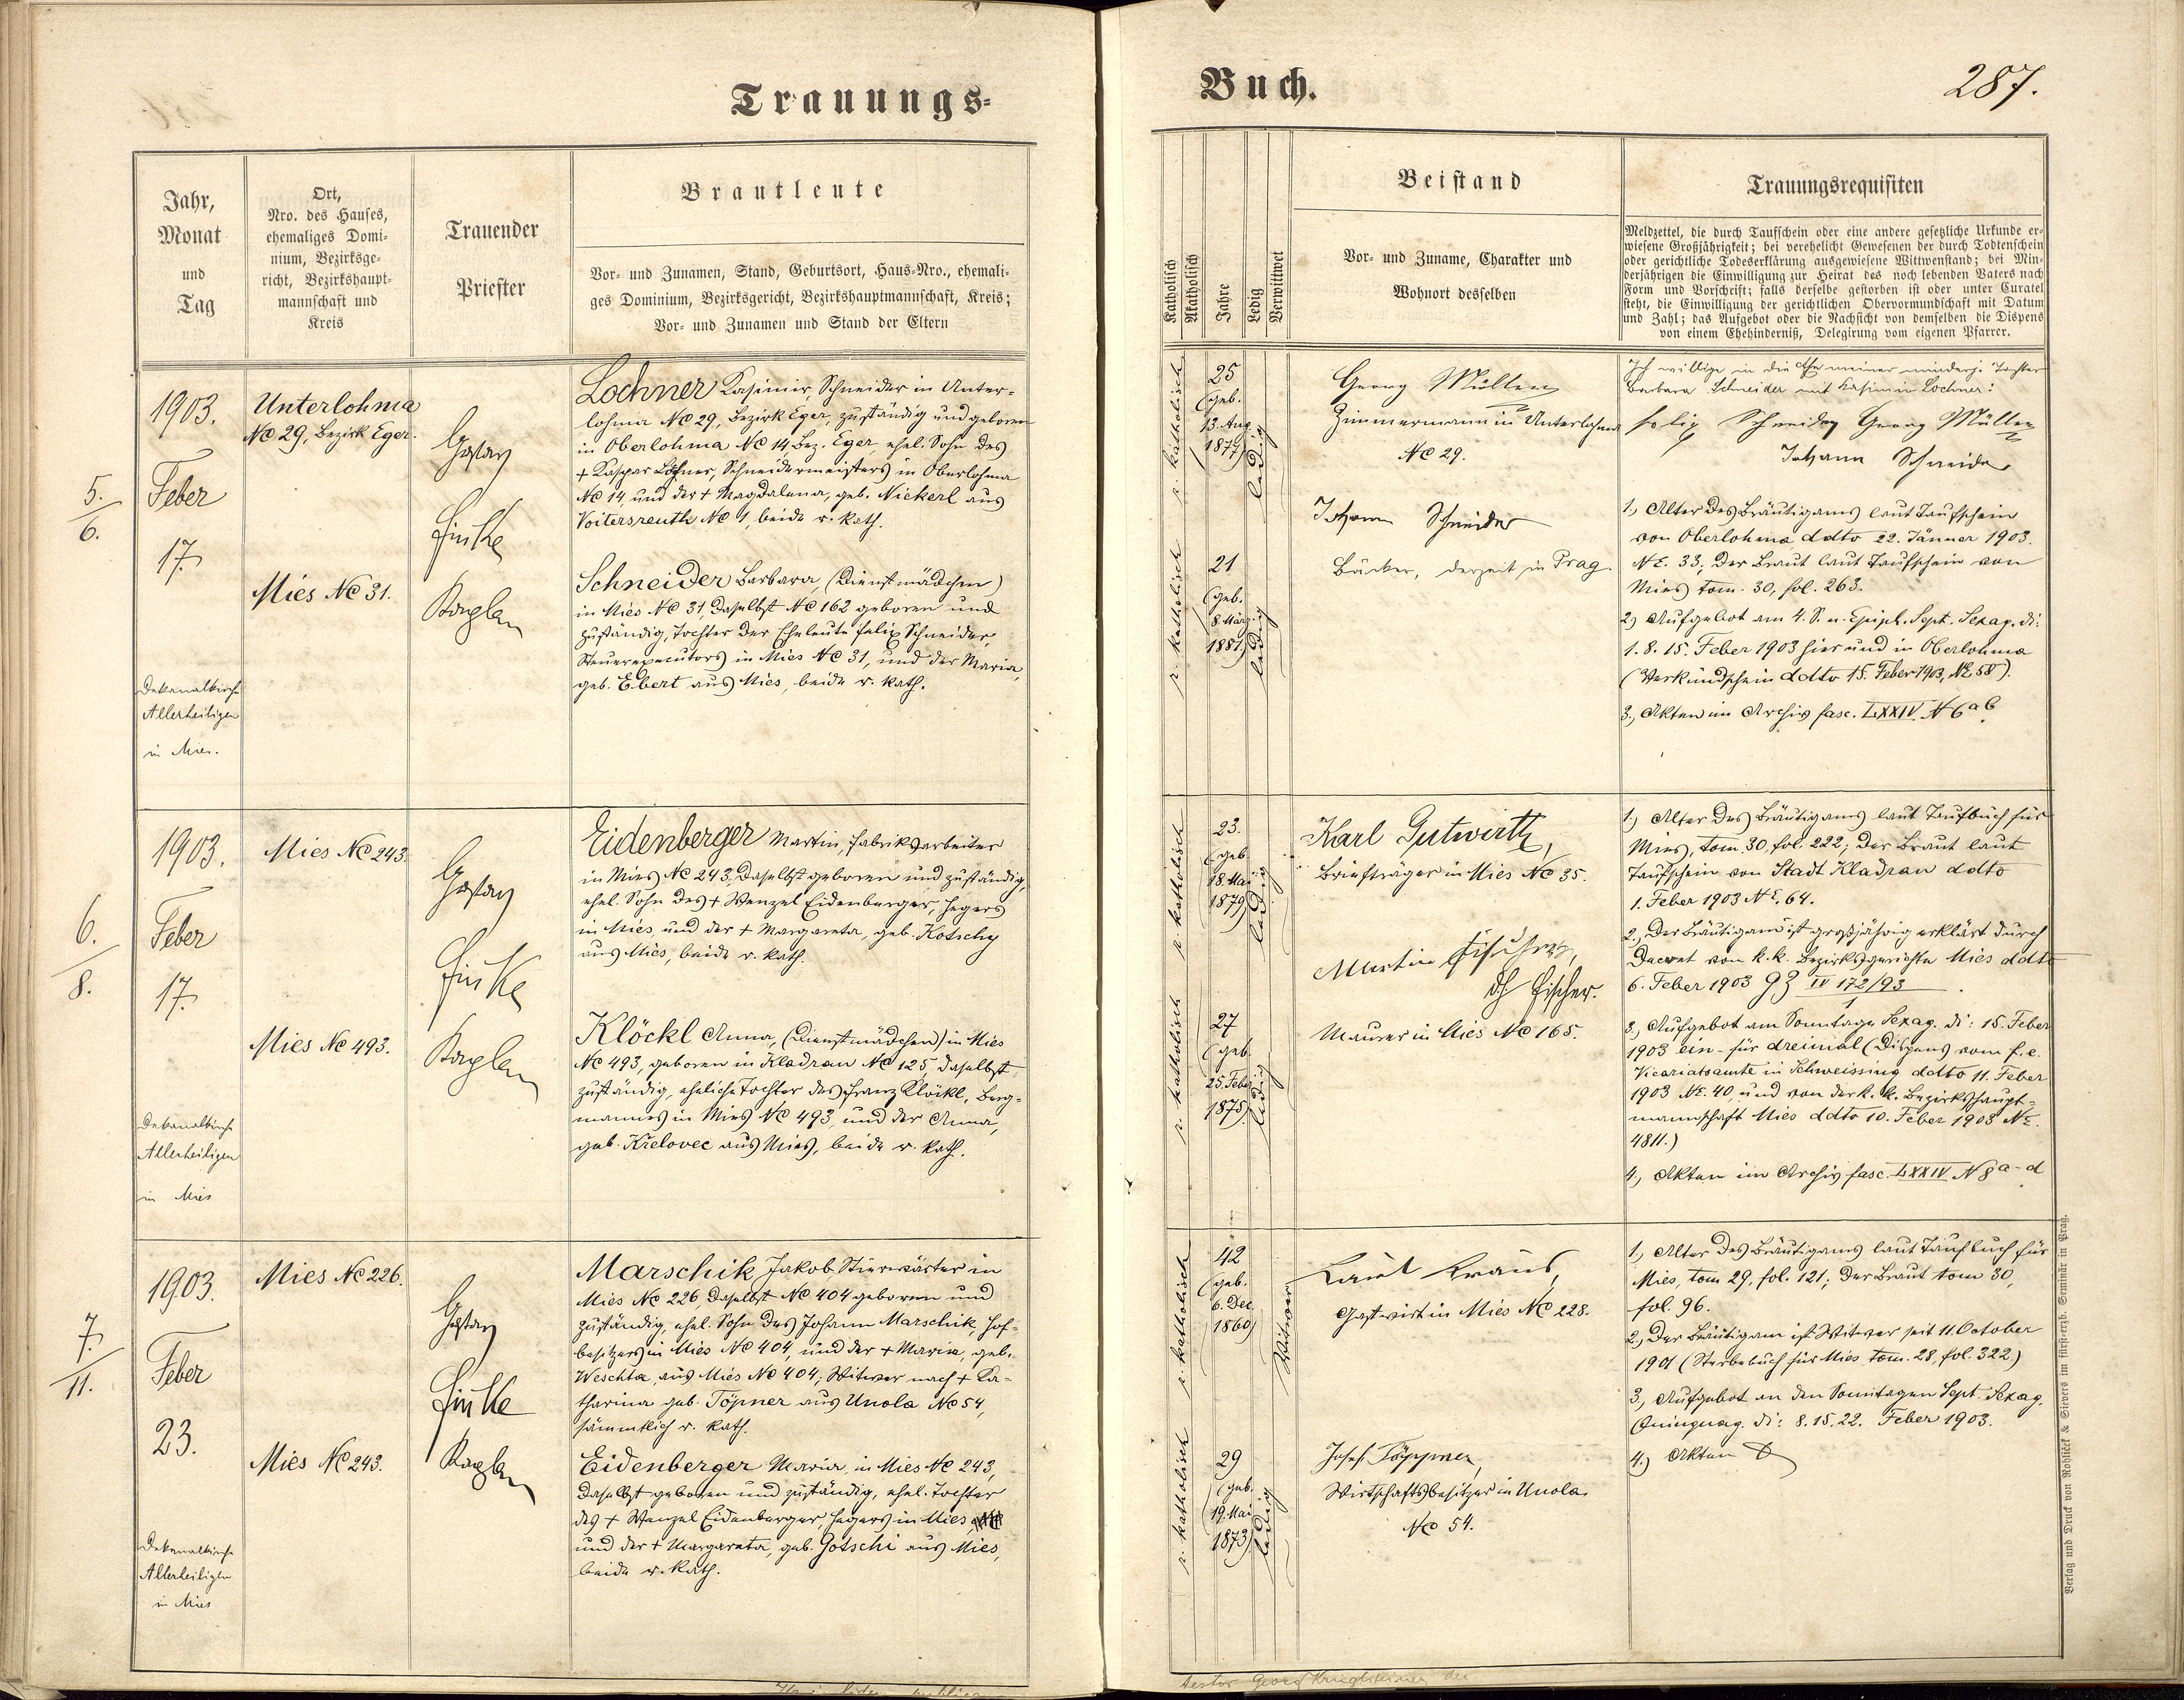 Trauungs=
Buch.
287.
Jahr,
Monat
und
Tag
Ort,
Nro. des Hauses,
ehemaliges Domi-
nium, Bezirksge-
richt, Bezirkshaupt-
mannschaft und
Kreis
Trauender
Priester
Brautleute
Vor- und Zunamen, Stand, Geburtsort, Haus-Nro., ehemali-
ges Dominium, Bezirksgericht, Bezirkshauptmannschaft, Kreis;
Vor- und Zunamen und Stand der Eltern
Katholisch
Akatholisch
Jahre
Ledig
Verwittwet
Beistand
Vor- und Zuname, Charakter und
Wohnort desselben
Trauungsrequisiten
Meldzettel, die durch Taufschein oder eine andere gesetzliche Urkunde er-
wiesene Großjährigkeit; bei verehelicht Gewesenen der durch Todtenschein
oder gerichtliche Todeserklärung ausgewiesene Wittwenstand; bei Min-
derjährigen die Einwilligung zur Heirat des noch lebenden Vaters nach
Form und Vorschrift; falls derselbe gestorben ist oder unter Curatel
steht, die Einwilligung der gerichtlichen Obervormundschaft mit Datum
und Zahl; das Aufgebot oder die Nachsicht von demselben die Dispens
von einem Ehehinderniß, Delegirung vom eigenen Pfarrer.
5.
6.
1903.
Feber
17.
Dekanalkirche
Allerheiligen
in Mies.
Unterlohma
No 29, Bezirk Eger.
Mies No 31.
Gustav
Finke
Kaplan
Lochner Kasimir, Schneider in Unter-
lohma No 29, Bezirk Eger, zuständig und geboren
in Oberlohma No 14, Bez. Eger, ehel. Sohn des
+ Kaspar Lochner, Schneidermeisters in Oberlohma
No 14, und der + Magdalena, geb. Nickerl aus
Voitersreuth No 1, beide r. kath.
Schneider Barbara, (Dienstmädchen)
in Mies No 31, daselbst No 162 geboren und
zuständig, Tochter der Eheleute Felix Schneider,
Steuerexecutors in Mies No 31, und der Maria,
geb. Ebert aus Mies, beide r. kath.
r. katholisch
25
(geb.
13. Aug.
1877)
ledig
r. katholisch
21
(geb.
8. März
1881)
ledig
Georg Müller
Zimmermann in Unterlohma
No 29.
Johann Schneider
Bäcker, derzeit in Prag.
Ich willige in die Ehe meiner minderj. Tochter
Barbara Schneider mit Kasimir Lochner:
Felix Schneider Georg Müller
Johann Schneider
1., Alter des Bräutigams laut Taufschein
von Oberlohma ddto 22. Jänner 1903.
No. 33; der Braut laut Taufschein von
Mies tom. 30, fol. 263.
2., Aufgebot am 4. S. n. Epiph. Sept. Sexag. di:
1. 8. 15. Feber 1903 hier und in Oberlohma
(Verkündschein ddto 15. Feber 1903, No 58).
3., Akten im Archiv fasc. LXXIV N 6 a b
6.
8.
1903.
Feber
17.
Dekanalkirche
Allerheiligen
in Mies
Mies No 243.
Mies No 493.
Gustav
Finke
Kaplan
Eidenberger Martin, Fabriksarbeiter
in Mies No 243, daselbst geboren und zuständig,
ehel. Sohn des + Wenzel Eidenberger, Hegers
in Mies, und der + Margareta, geb. Kotschy
aus Mies, beide r. kath.
Klöckl Anna, (Dienstmädchen) in Mies
No 493, geboren in Kladrau No 125, daselbst
zuständig, eheliche Tochter des Franz Klöckl, Berg-
mannes in Mies No 493 und der Anna,
geb. Křelovec aus Mies, beide r. kath.
r. katholisch
23.
(geb.
18. Mai
1879)
ledig
r. katholisch
27
(geb.
25. Feber
1875)
ledig
Karl Gutwirth,
Briefträger in Mies No 35.
Martin Fischer,
dh Fischer.
Maurer in Mies No 165.
1., Alter des Bräutigams laut Taufbuch für
Mies, tom. 30, fol. 222; der Braut laut
Taufschein von Stadt Kladrau ddto
1. Feber 1903 No. 64.
2., Der Bräutigam ist großjährig erklärt durch
Decret vom k. k. Bezirksgerichte Mies ddto
6. Feber 1903 GZ IV 172/93
1
3., Aufgebot am Sonntage Sexag. di: 15. Feber
1903 ein- für dreimal (Dispens vom f. e.
Vicariatsamte in Schweissing ddto 11. Feber
1903 No. 40, und von der k. k. Bezirkshaupt-
mannschaft Mies ddto 10. Feber 1903 No.
4811.)
4., Akten im Archiv fasc. LXXIV N 8 a-d
7.
11.
1903.
Feber
23.
Dekanalkirche
Allerheiligen
in Mies
Mies No 226.
Mies No 243.
Gustav
Finke
Kaplan
Marschik Jakob, Stierwärter in
Mies No 226, daselbst No 404 geboren und
zuständig, ehel. Sohn des Johann Marschik, Hof-
besitzers in Mies No 404, und der + Maria, geb.
Weschta, aus Mies No 404; Witwer nach + Ka-
tharina geb. Töpner aus Unola No 54,
sämmtlich r. kath.
Eidenberger Maria, in Mies No 243,
daselbst geboren und zuständig, ehel. Tochter
des + Wenzel Eidenberger, Hegers in Mies,
und der + Margareta, geb. Gotschi aus Mies,
beide r. kath.
r. katholisch
42
(geb.
6. Dec.
1860)
Witwer
r. katholisch
29
(geb.
19. Mai
1873)
ledig
Karl Kraus,
Gastwirt in Mies No 228.
Josef Töppner,
Wirtschaftsbesitzer in Unola
No 54.
1., Alter des Bräutigams laut Taufbuch für
Mies, tom 29, fol. 121; der Braut tom 30,
fol. 96.
2., Der Bräutigam ist Witwer seit 11. October
1901 (Sterbebuch für Mies tom. 28, fol. 322.)
3., Aufgebot an den Sonntagen Sept. Sexag.
Quinquag. di: 8. 15. 22. Feber 1903.
4.) Akten
Verlag und Druck von Rohlicek & Sievers im fürst-erzb. Seminär in Prag.